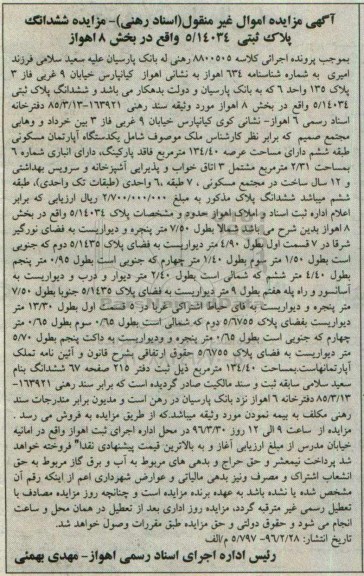 آگهی مزایده اموال غیر منقول(اسناد رهنی)- مزایده ششدانگ
پلاک ثبتی ۵/۱۴۰۳۴ واقع در بخش ۸ اهواز
بموجب پرونده اجرائی کلاسه ۸۸۰۰۵۰۵ رهنی له بانک پارسیان علیه سعید سلامی فرزند
امیری به شماره شناسنامه ۶۳۴ اهواز به نشانی اهواز کیانپارس خیابان ۹ غربی فاز ۳
پلاک ۱۳۵ واحد ۶ که به بانک پارسیان و دولت بدهکار می باشد و ششدانگ پلاک ثبتی
۵/۱۴۰۳۴ واقع در بخش ۸ اهواز مورد وثیقه سند رهنی ۱۶۳۹۲۱-۸۵/۳/۱۳ دفترخانه
اسناد رسمی ۶ اهواز- نشانی کوی کیانپارس خیابان ۹ غربی فاز ۳ بین خرداد و وهابی
مجتمع صمیم که برابر نظر کارشناس ملک موصوف شامل یکدستگاه آپارتمان مسکونی
طبقه ششم دارای مساحت عرصه ۱۳۴/۴۰ مترمربع فاقد پارکینگ، دارای انباری شماره ۶
بمساحت ۲/۳۱ مترمربع مشتمل ۳ اتاق خواب و پذیرایی آشپزخانه و سرویس بهداشتی
و ۱۲ سال ساخت در مجتمع مسکونی ۷۰ طبقه ۶۰ واحدی (طبقات تک واحدی)، طبقه
ششم میباشد ششدانگ پلاک مذکور به مبلغ ۲/۷۰۰/۰۰۰/۰۰۰ ریال ارزیابی که برابر
اعلام اداره ثبت اسناد و املاک اهواز حدود و مشخصات پلاک ۵/۱۴۰۳۴ واقع در بخش
۸ اهواز بدین شرح می باشد شمالا بطول ۷/۵۰ متر پنجره و دیواریست به فضای نورگیر
شرقا در ۷ قسمت اول بطول ۴/۹۰ متر دیواریست به فضای پلاک ۵/۱۴۳۵ دوم که جنوبی
است بطول ۱/۵۰ متر سوم بطول ۱/۴۰ متر چهارم که جنوبی است بطول ۰/۹۵ متر پنجم
بطول ۴/۴۰ متر ششم که شمالی است بطول ۲/۴۰ متر دیوار و درب و دیواریست به
آسانسور و راه پله هفتم بطول ۹ متر دیواریست به فضای پلاک ۵/۱۴۳۵ جنوبا بطول ۷/۵۰
متر پنجره و دیواریست به فضای حیاط اشتراکی غربا در ۵ قسمت اول بطول ۱۳/۳۰ متر
دیواریست بفضای پلاک ۵/۶۷۵۵ دوم که شمالی است بطول ۰/۶۵ سوم بطول ۰/۶۵ متر
چهارم که جنوبی است بطول ۰/۶۵ متر پنجره و دیواریست به داکت پنجم بطول ۵/۷۰
متر دیواریست به فضای پلاک ۵/۶۷۵۵ حقوق ارتفاقی بشرح قانون و آئین نامه تملک
آپارتمانهاست.بمساحت ۱۳۴/۴۰ مترمربع ذیل ثبت دفتر ۲۱۵ صفحه ۶۷ ششدانگ بنام
سعید سلامی سابقه ثبت و سند مالکیت صادر گردیده است که برابر سند رهنی ۱۶۳۹۲۱-
۸۵/۳/۱۳ دفترخانه ۶ اهواز نزد بانک پارسیان در رهن است و مدیون برابر مندرجات سند
رهنی مکلف به بیمه نمودن مورد وثیقه میباشد.که از طریق مزایده به فروش می رسد .
مزایده از ساعت ۹ الی ۱۲ روز ۹۶/۳/۳۰ در محل اداره اجرای ثبت اهواز واقع در امانیه
خیابان مدرس از مبلغ ارزیابی آغاز و به بالاترین قیمت پیشنهادی نقدا" فروخته خواهد
شد پرداخت نیمعشر و حق حراج و بدهی های مربوط به آب و برق گاز مربوط به حق
انشعاب اشتراک و مصرف ونیز بدهی مالیاتی و عوارض شهرداری اعم از اینکه رقم آن
مشخص شده یا نشده باشد به عهده برنده مزایده است و چنانچه روز مزایده مصادف با
تعطیل رسمی غیر مترقبه گردد، مزایده روز اداری بعد از تعطیل در همان محل و ساعت
انجام می شود و حقوق دولتی و حق مزایده طبق مقررات وصول خواهد شد.
تاریخ انتشار: ۹۶/۲/۲۸- ۵/۷۹۷ م/الف
رئیس اداره اجرای اسناد رسمی اهواز- مهدی بهمئی